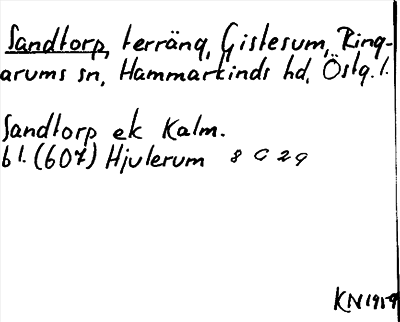 Sandtorp, terräng, Gistesum, Ring-
arums sn, Hammarkinds hd, Östg. l.
Sandtorp ek Kalm.
bl. (607) Hjulerum 8 G 2 g
KN 1959